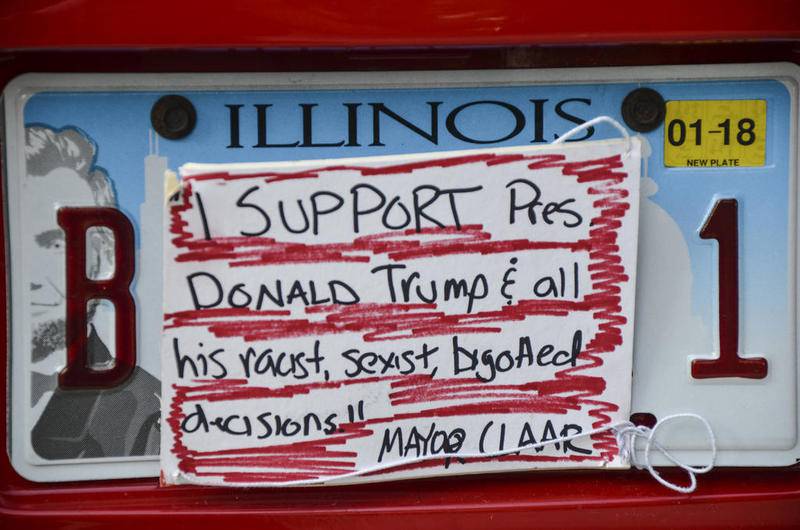 ILLINOIS
01-18
NEW PLATE
B 1
"I SUPPORT Pres
DONALD Trump & all
his racist, sexist, bigotted
decisions."
MAYOR CLAAR